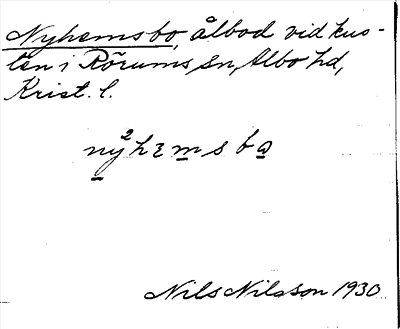 Nyhemsbo, ålbod vid kus-
ten i Rörums sn, Albo hd,
Krist. l.
ny²hɛmsbo
Nils Nilsson 1930